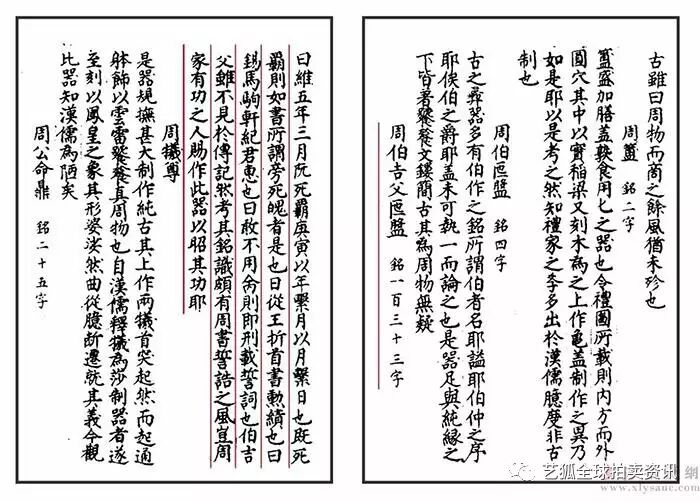 古雖曰周物而商之餘風猶未殄也
周簠 銘二字
簠盛加膳蓋熟食用匕之器也今禮圖所載則內方而外
圓穴其中以實稻粱又刻木為之上作龜蓋制作之異乃
如是耶以是考之然知禮家之學多出於漢儒臆度非古
制也
周伯匜盤 銘四字
古之彞器多有伯作之銘所謂伯者名耶謚耶伯仲之序
耶侯伯之爵耶蓋未可執一而論之也是器足與純緣之
下皆著饕餮文鏤簡古其為周物無疑
周伯吉父匜盤 銘一百三十三字
曰維五年三月既死霸庚寅以年繫月以月繫日也既死
霸則如書所謂旁死魄者是也曰從王折首書勳績也曰
錫馬駒軒紀君惠也曰敢不用命則即刑載誓詞也伯吉
父雖不見於傳記然考其銘識頗有周書誓誥之風豈周
家有功之人賜作此器以昭其功耶
周犧尊
是器規撫甚大制作純古其上作兩犧首突起然而起通
體飾以雲雷饕餮真周物也自漢儒釋犧為莎制器者遂
至刻以鳳皇之象其形婆娑然曲從臆斷遷就其義今觀
比器知漢儒為陋矣
周公命鼎 銘二十五字
艺狐全球拍卖资讯
網
www.xlysauc.com